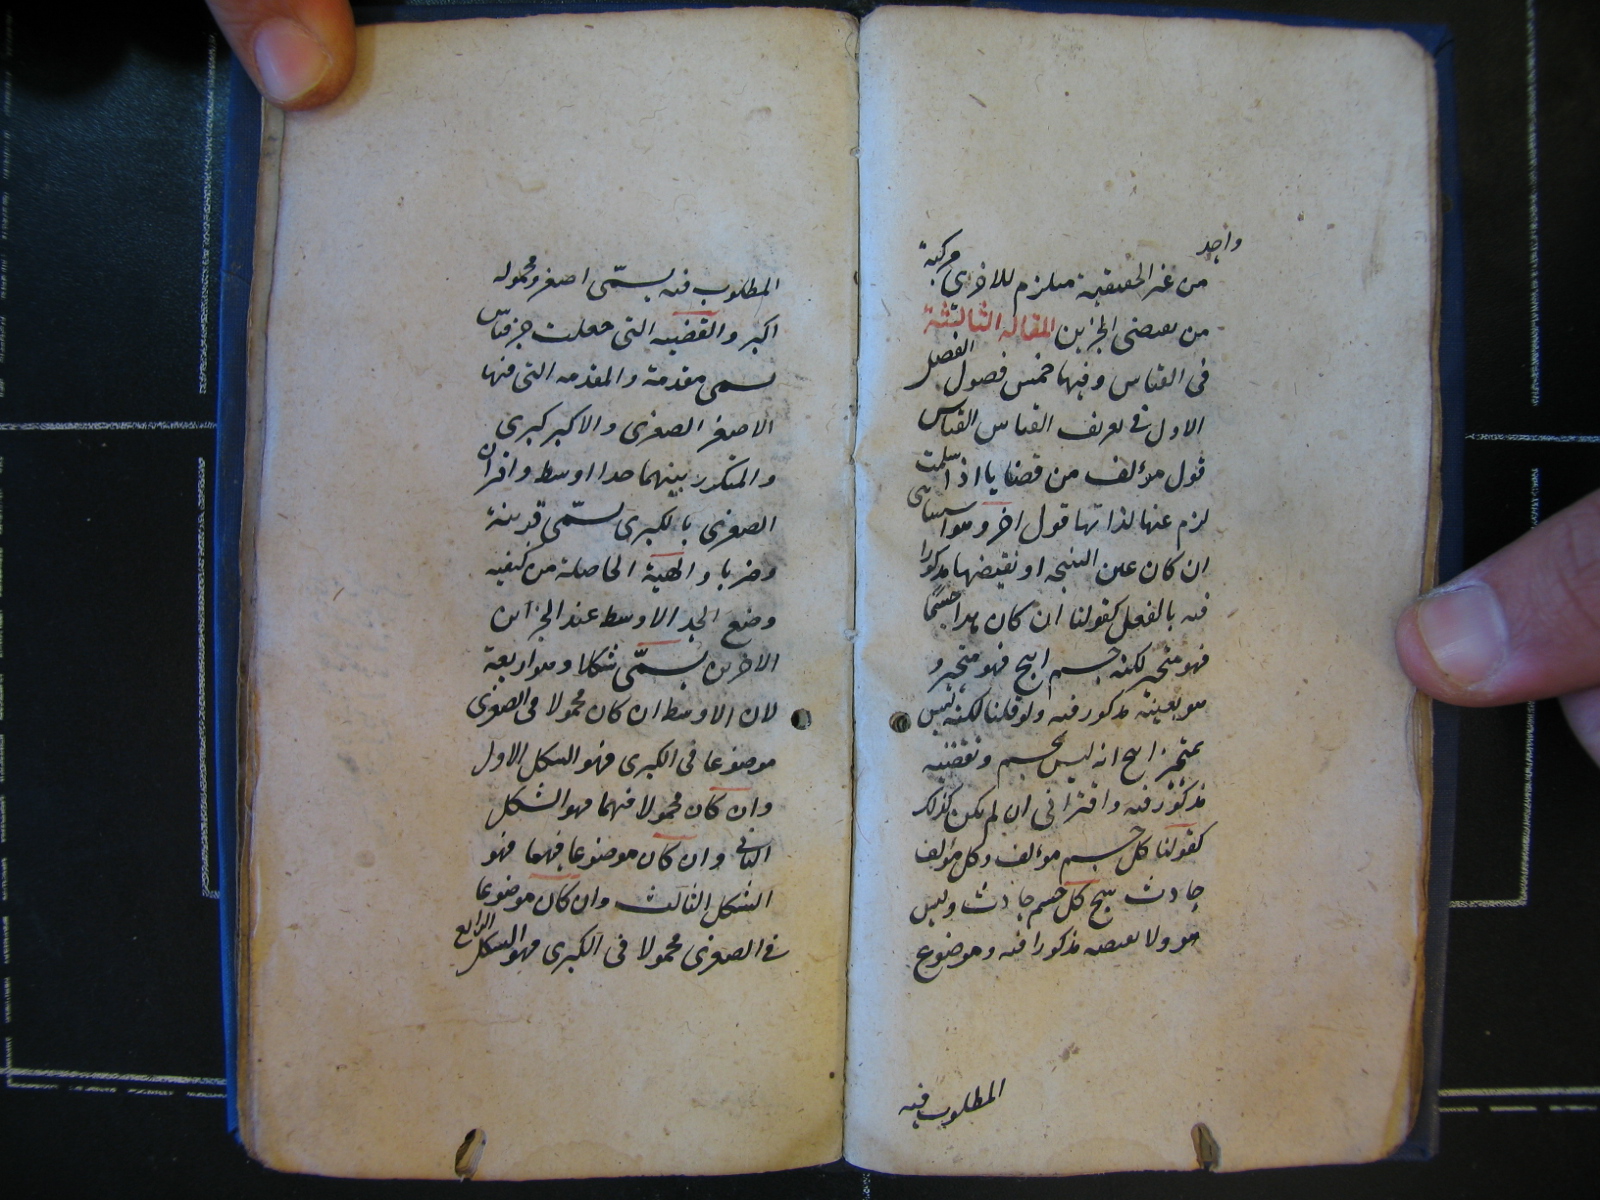 واحد
من غير الحقيقية مستلزم للاخرى مركبة
من نقيضى الجزأين المقالة الثالثة
فى القياس وفيها خمس فصول الفصل
الاول فى تعريف القياس القياس
قول مؤلف من قضايا اذا سلمت
لزم عنها لذاتها قول اخر وهو استثنائى
ان كان عين النتيجة او نقيضها مذكورا
فيه بالفعل كقولنا ان كان هذا جسمًا
فهو متحيز لكنه جسم انتج فهو متحيز و
هو بعينه مذكور فيه ولو قلنا لكنه ليس
بمتحيز انتج انه ليس بجسم ونقيضه
مذكور فيه واقترانى ان لم يكن كذلك
كقولنا كل جسم مؤلف وكل مؤلف
حادث ينتج كل جسم حادث وليس
هو ولا نقيضه مذكورا فيه وموضوع
المطلوب فيه
المطلوب فيه يسمّى اصغر ومحموله
اكبر والقضية التى جعلت جزء قياس
يسمى مقدمة والمقدمة التى فيها
الاصغر الصغرى والاكبر كبرى
والمتكرر بينهما حدا اوسط واقتران
الصغرى بالكبرى يسمّى قرينة
وضربا والهيئة الحاصلة من كيفية
وضع الحد الاوسط عند الجزأين
الاخرين يسمّى شكلا وهو اربعة
لان الاوسط ان كان محمولا فى الصغرى
موضوعا فى الكبرى فهو الشكل الاول
وان كان محمولا فيهما فهو الشكل
الثانى وان كان موضوعا فيهما فهو
الشكل الثالث وان كان موضوعا
فى الصغرى محمولا فى الكبرى فهو الشكل الرابع